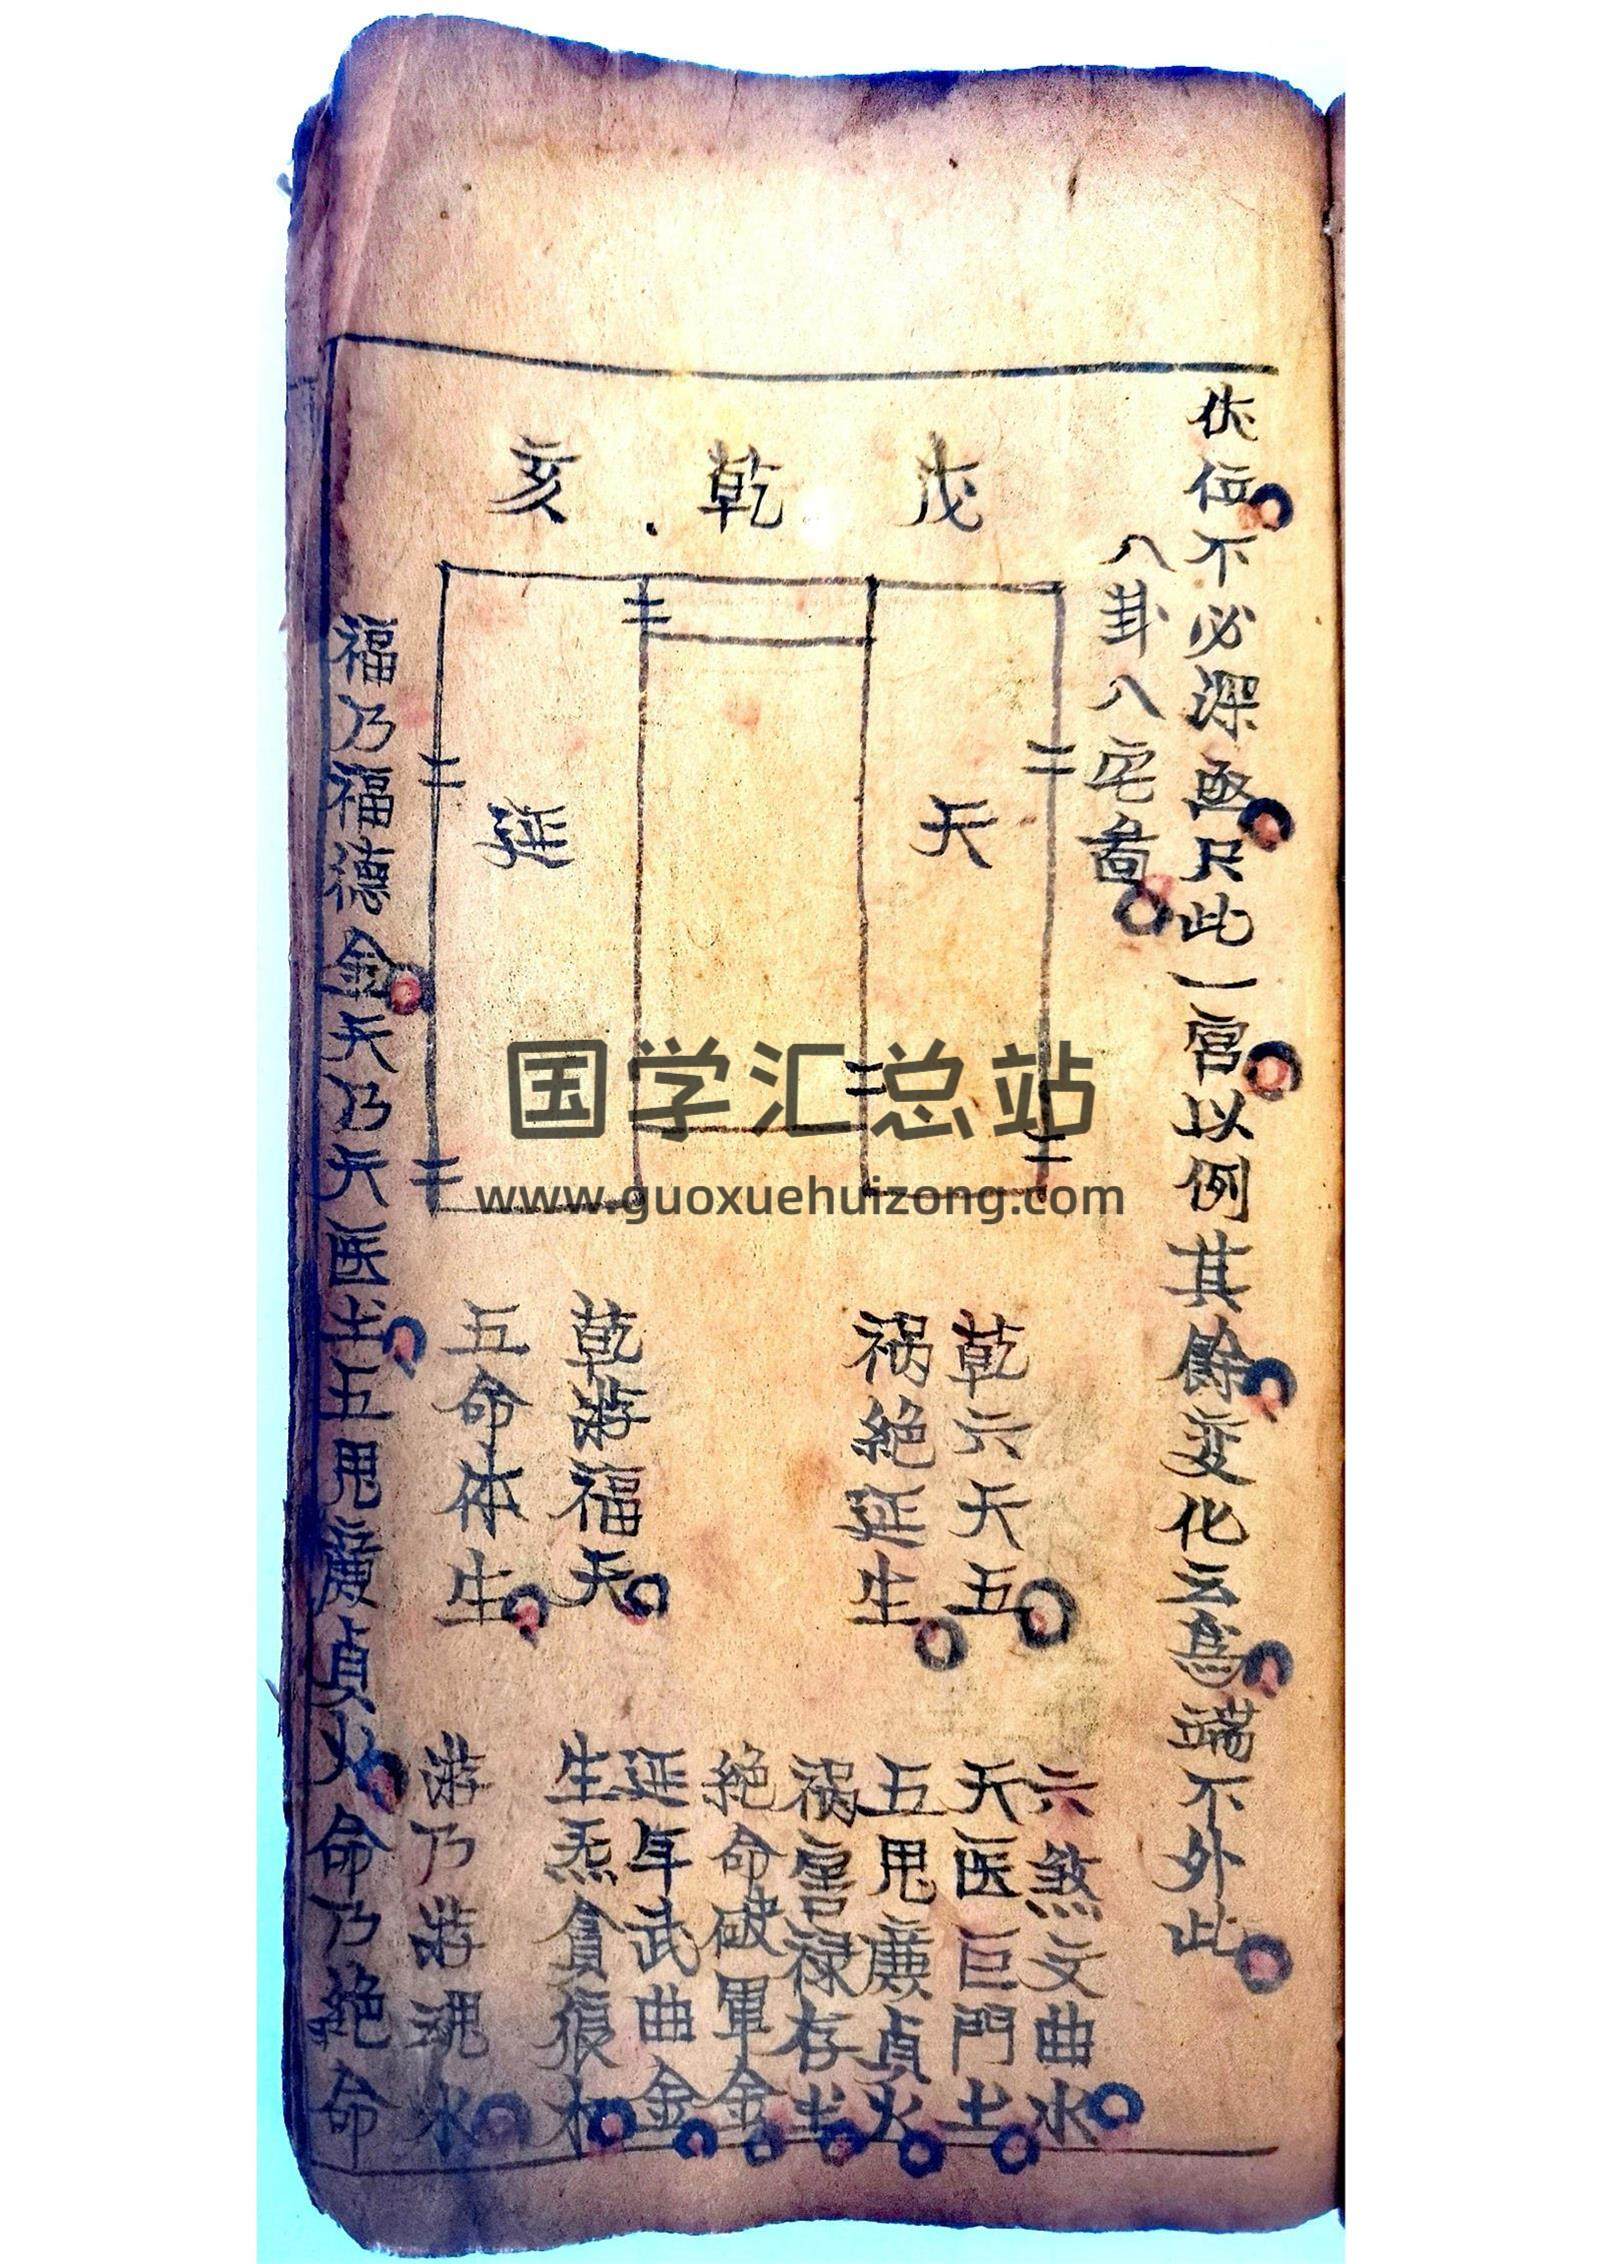 伏位不必深亟只此一宮以例其餘変化云為端不外此
八卦八宅啚
戌 乾 亥
天
延
乾六天五
禍絶延生
乾游福天
五命体生
六煞文曲水
天医巨門土
五鬼廉貞火
禍害禄存土
絶命破軍金
延年武曲金
生炁貪狼木
游乃游魂水
福乃福德金天乃天医土五鬼廉貞火命乃絶命
国学汇总站
www.guoxuehuizong.com